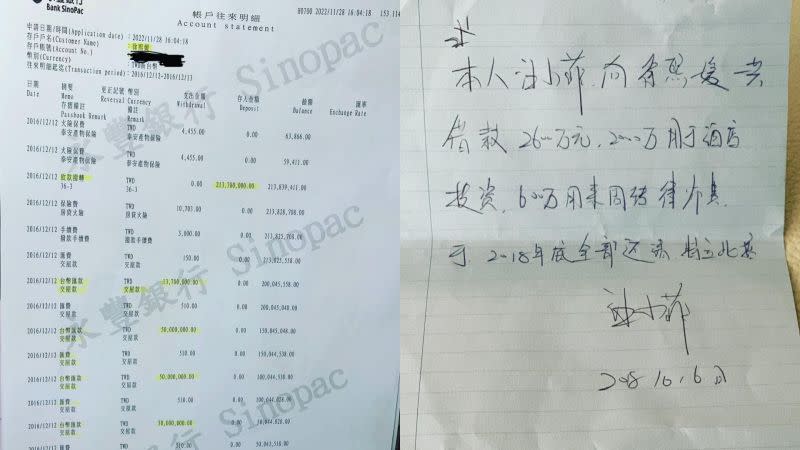 Bank SinoPac
帳戶往來明細
Account statement
2022/11/28 16:04:18 153.114
申請日期/時間(Application date) : 2022/11/28 16:04:18
存戶戶名(Customer Name) :
存戶帳號(Account No.) :
幣別(Currency) : TWD新台幣
往來明細起迄(Transaction period) : 2016/12/12~2016/12/13
日期 摘要 更正記號 幣別 支出金額 存入金額 餘額 匯率
Date Memo Reversal Currency Withdrawal Deposit Balance Exchange Rate
存摺備註 備註
Passbook Remark Remark
2016/12/12 火險保費 TWD 4,455.00 0.00 63,866.00
泰安產物保險 泰安產物保險
2016/12/12 火險保費 TWD 4,455.00 0.00 59,411.00
泰安產物保險 泰安產物保險
2016/12/12 放款撥轉 TWD 0.00 213,780,000.00 213,839,411.00
36-3 36-3
2016/12/12 保險費 TWD 10,703.00 0.00 213,828,708.00
房貸火險 房貸火險
2016/12/12 手續費 TWD 3,000.00 0.00 213,825,708.00
撥款手續費 撥款手續費
2016/12/12 匯費 TWD 150.00 0.00 213,825,558.00
交屋款 交屋款
2016/12/12 台幣匯款 TWD 13,780,000.00 0.00 200,045,558.00
交屋款 交屋款
2016/12/12 匯費 TWD 510.00 0.00 200,045,048.00
交屋款 交屋款
2016/12/12 台幣匯款 TWD 50,000,000.00 0.00 150,045,048.00
交屋款 交屋款
2016/12/12 匯費 TWD 510.00 0.00 150,044,538.00
交屋款 交屋款
2016/12/12 台幣匯款 TWD 50,000,000.00 0.00 100,044,538.00
交屋款 交屋款
2016/12/12 匯費 TWD 510.00 0.00 100,044,028.00
交屋款 交屋款
2016/12/12 台幣匯款 TWD 50,000,000.00 0.00 50,044,028.00
交屋款 交屋款
2016/12/12 匯費 TWD 510.00 0.00 50,043,518.00
永豐銀行 Sinopac
永豐銀行 Sinopac
本人汪小菲,向徐熙媛共
借款2600万元,2000万用于酒店
投资,600万用来周转律师费.
于2018年底全部还清 特立此据
汪小菲
2018.10.6日